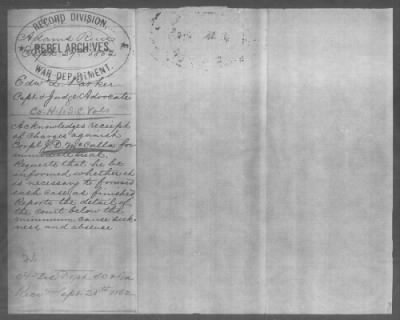 RECORD DIVISION
REBEL ARCHIVES
WAR DEPARTMENT.
Adams Run
Sept 27. 1862
Capt & Judge Advocate
Co. H. S.C. Vols
Acknowledges receipt
of charges against
Corpl J. D. McCalla for
immediate trial.
Requests that he be
informed whether it
is necessary to forward
each case as finished
Reports the detail of
the court below the
minimum cause sick-
ness and absence
Recd Sept. 28th 1862